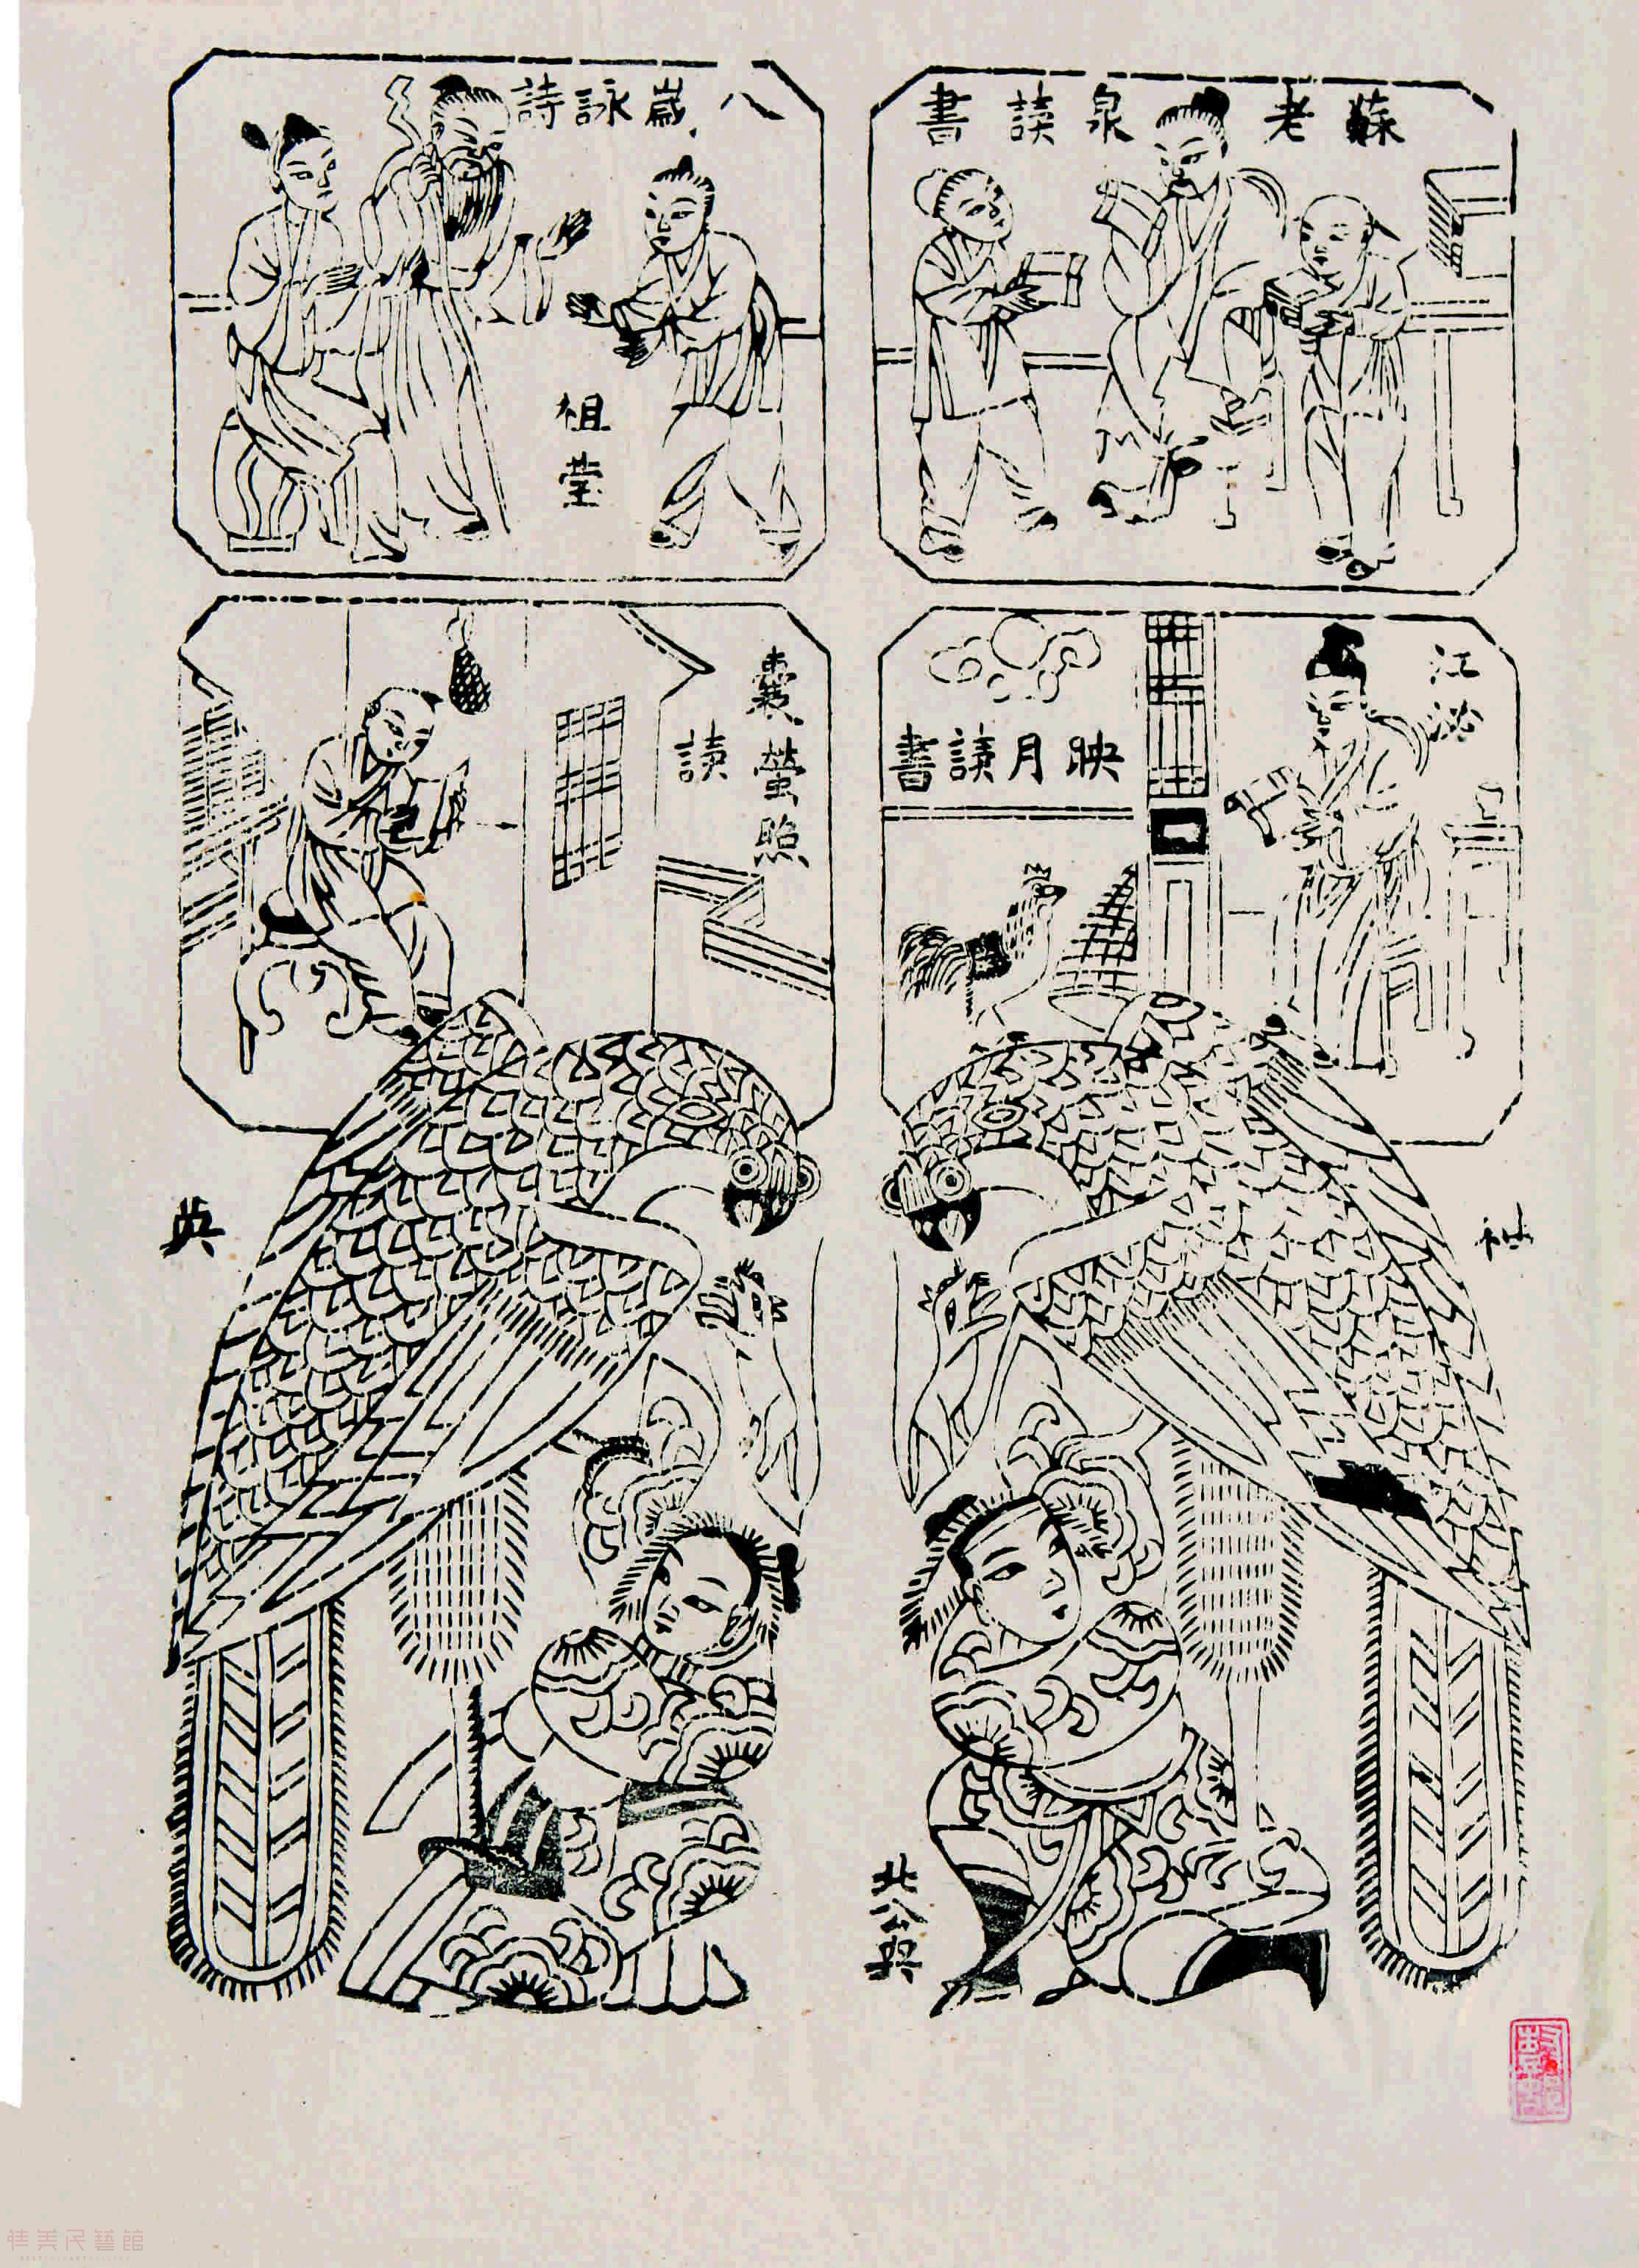 蘇老泉讀書
八歲詠詩
祖瑩
江泌
映月讀書
囊螢照
讀
英
北公興
佳美民藝館